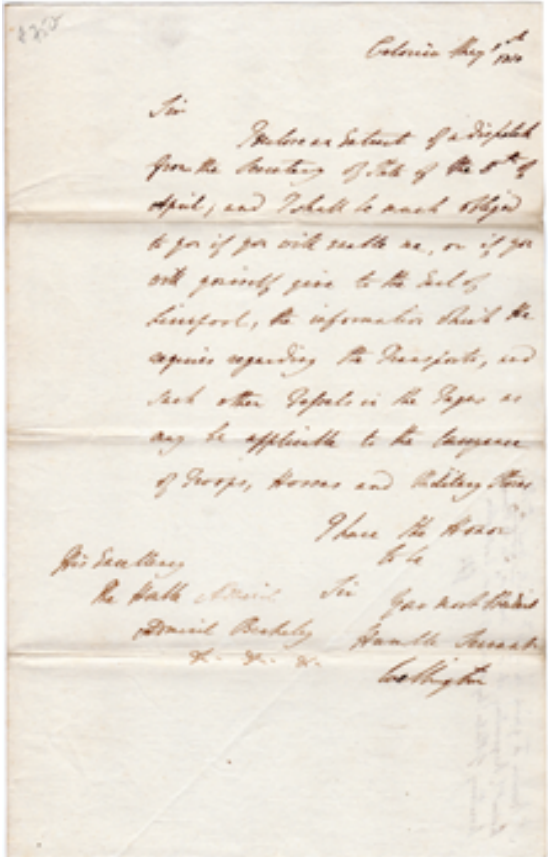 Celorico May 1st
1810
Sir
I enclose an Extract of a dispatch
from the Secretary of State of the 5th of
April, and I shall be much obliged
to you if you will enable me, or if you
will yourself give to the Earl of
Liverpool, the information which He
requires regarding the Transports, and
such other Vessels in the Tagus as
may be applicable to the Conveyance
of Troops, Horses and Military Stores
I have the Honor
to be
His Excellency
The Honble Admiral
Sir
Your most obedient
Admiral Berkeley
Humble Servant
&c. &c. &c.
Wellington